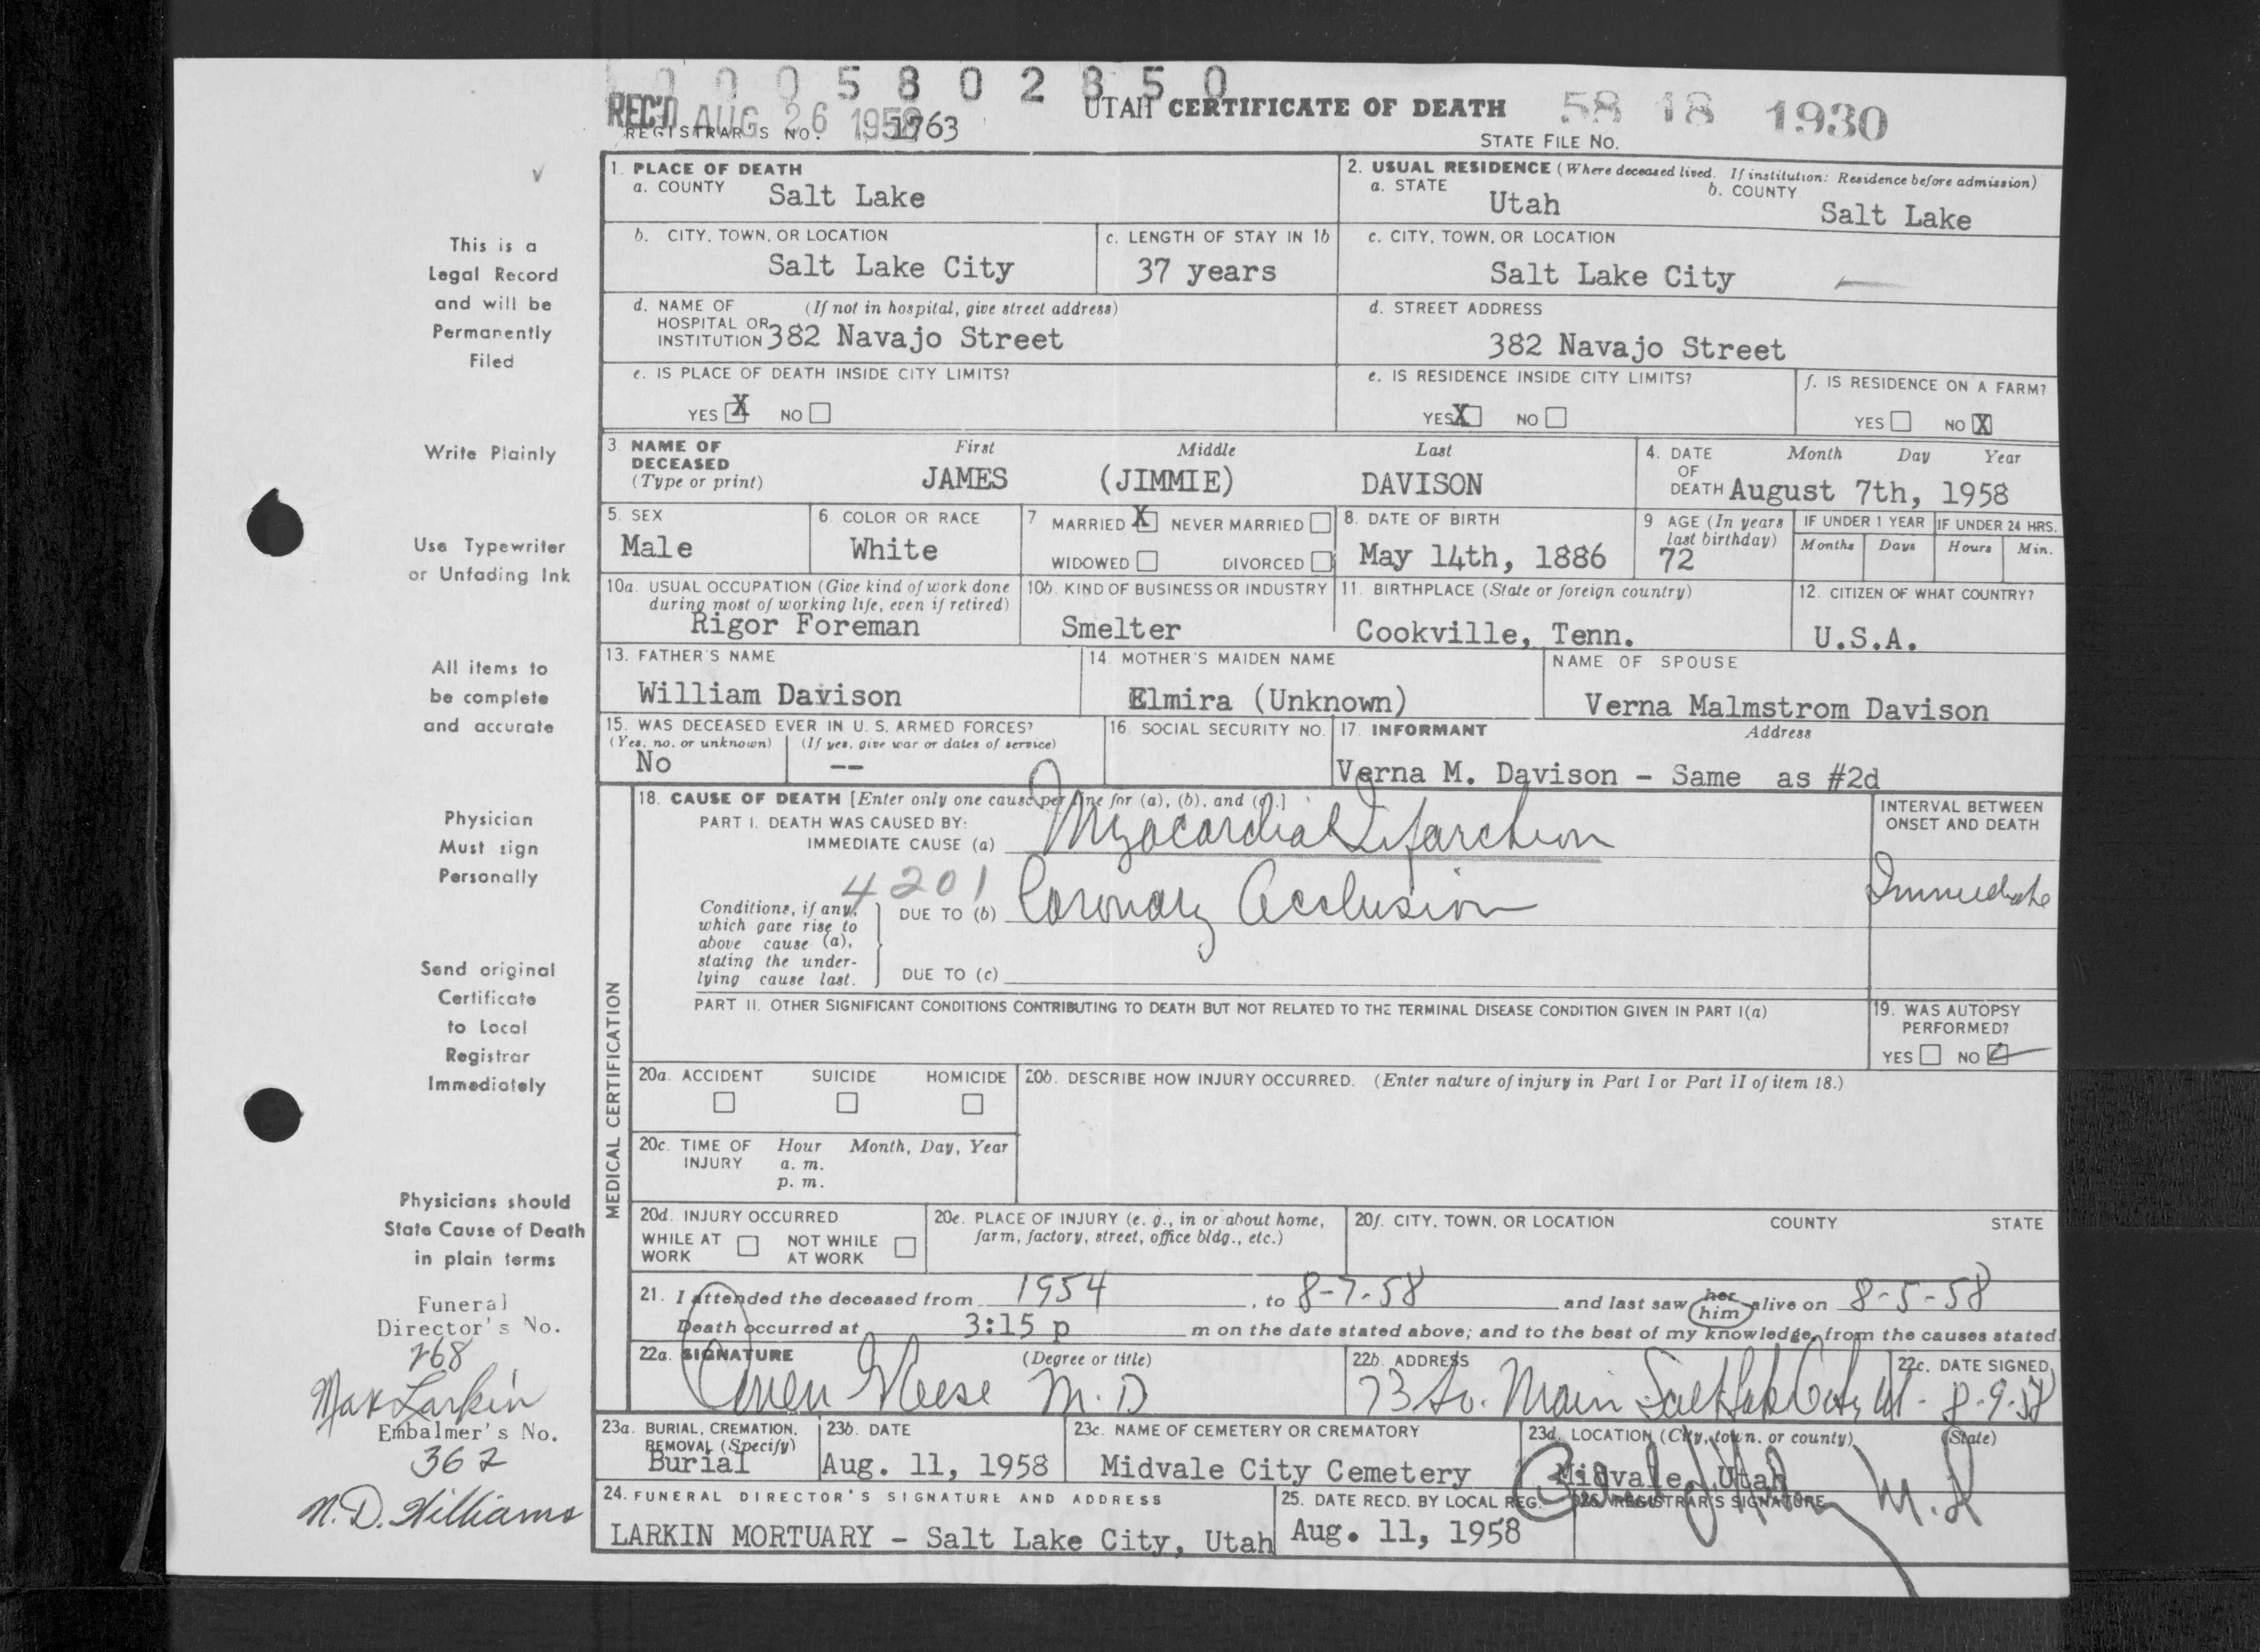 0005802850
REC'D AUG 26 1958
REGISTRAR'S NO. 1763
UTAH CERTIFICATE OF DEATH
58 18 1930
STATE FILE NO.
This is a
Legal Record
and will be
Permanently
Filed
Write Plainly
Use Typewriter
or Unfading Ink
All items to
be complete
and accurate
Physician
Must sign
Personally
Send original
Certificate
to Local
Registrar
Immediately
Physicians should
State Cause of Death
in plain terms
Funeral
Director's No.
268
Max Larkin
Embalmer's No.
362
N.D. Williams
1. PLACE OF DEATH
a. COUNTY Salt Lake
2. USUAL RESIDENCE (Where deceased lived. If institution: Residence before admission)
a. STATE Utah b. COUNTY Salt Lake
b. CITY, TOWN, OR LOCATION Salt Lake City
c. LENGTH OF STAY IN 1b 37 years
c. CITY, TOWN, OR LOCATION Salt Lake City
d. NAME OF (If not in hospital, give street address)
HOSPITAL OR
INSTITUTION 382 Navajo Street
d. STREET ADDRESS
382 Navajo Street
e. IS PLACE OF DEATH INSIDE CITY LIMITS?
YES X NO
e. IS RESIDENCE INSIDE CITY LIMITS?
YES X NO
f. IS RESIDENCE ON A FARM?
YES NO X
3. NAME OF DECEASED (Type or print)
First Middle Last
JAMES (JIMMIE) DAVISON
4. DATE OF DEATH Month Day Year
August 7th, 1958
5. SEX
Male
6. COLOR OR RACE
White
7 MARRIED X NEVER MARRIED
WIDOWED DIVORCED
8. DATE OF BIRTH
May 14th, 1886
9 AGE (In years last birthday)
72
IF UNDER 1 YEAR IF UNDER 24 HRS.
Months Days Hours Min.
10a. USUAL OCCUPATION (Give kind of work done
during most of working life, even if retired)
Rigor Foreman
10b. KIND OF BUSINESS OR INDUSTRY
Smelter
11. BIRTHPLACE (State or foreign country)
Cookville, Tenn.
12. CITIZEN OF WHAT COUNTRY?
U.S.A.
13. FATHER'S NAME
William Davison
14. MOTHER'S MAIDEN NAME
Elmira (Unknown)
NAME OF SPOUSE
Verna Malmstrom Davison
15. WAS DECEASED EVER IN U. S. ARMED FORCES?
(Yes, no, or unknown) (If yes, give war or dates of service)
No --
16. SOCIAL SECURITY NO.
17. INFORMANT Address
Verna M. Davison - Same as #2d
MEDICAL CERTIFICATION
18. CAUSE OF DEATH [Enter only one cause per line for (a), (b), and (c).]
PART I. DEATH WAS CAUSED BY:
IMMEDIATE CAUSE (a) Myocardial Infarction
INTERVAL BETWEEN
ONSET AND DEATH
Immediate
4201
Conditions, if any,
which gave rise to
above cause (a),
stating the under-
lying cause last.
DUE TO (b) Coronary Occlusion
DUE TO (c)
PART II. OTHER SIGNIFICANT CONDITIONS CONTRIBUTING TO DEATH BUT NOT RELATED TO THE TERMINAL DISEASE CONDITION GIVEN IN PART I(a)
19. WAS AUTOPSY
PERFORMED?
YES NO ✓
20a. ACCIDENT SUICIDE HOMICIDE
20b. DESCRIBE HOW INJURY OCCURRED. (Enter nature of injury in Part I or Part II of item 18.)
20c. TIME OF INJURY Hour Month, Day, Year
a. m.
p. m.
20d. INJURY OCCURRED
WHILE AT WORK NOT WHILE AT WORK
20e. PLACE OF INJURY (e. g., in or about home,
farm, factory, street, office bldg., etc.)
20f. CITY, TOWN, OR LOCATION COUNTY STATE
21. I attended the deceased from 1954, to 8-7-58 and last saw her him alive on 8-5-58
Death occurred at 3:15 p m on the date stated above; and to the best of my knowledge, from the causes stated.
22a. SIGNATURE (Degree or title)
Owen Reese M.D
22b. ADDRESS
73 So. Main Salt Lake City Ut.
22c. DATE SIGNED
8-9-58
23a. BURIAL, CREMATION,
REMOVAL (Specify)
Burial
23b. DATE
Aug. 11, 1958
23c. NAME OF CEMETERY OR CREMATORY
Midvale City Cemetery
23d. LOCATION (City, town, or county) (State)
Midvale, Utah
24. FUNERAL DIRECTOR'S SIGNATURE AND ADDRESS
LARKIN MORTUARY - Salt Lake City, Utah
25. DATE RECD. BY LOCAL REG.
Aug. 11, 1958
26. REGISTRAR'S SIGNATURE
M.D